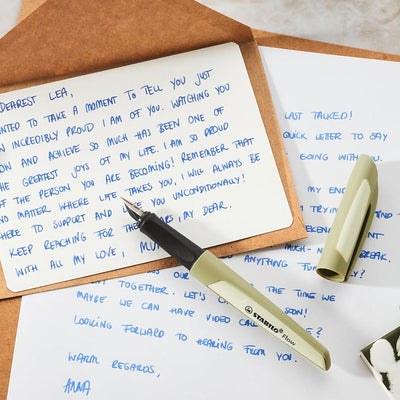 DEAREST LEA,
NTED TO TAKE A MOMENT TO TELL YOU JUST
INCREDIBLY PROUD I AM OF YOU. WATCHING YOU
ON AND ACHIEVE SO MUCH HAS BEEN ONE OF
HE GREATEST JOYS OF MY LIFE. I AM SO PROUD
F THE PERSON YOU ARE BECOMING! REMEMBER THAT
NO MATTER WHERE LIFE TAKES YOU, I WILL ALWAYS BE
HERE TO SUPPORT AND YOU UNCONDITIONALLY!
KEEP REACHING FOR THE ARS, MY DEAR.
WITH ALL MY LOVE,
LAST TALKED!
QUICK LETTER TO SAY
GOING WITH YOU.
MY EN
TRYIN AND
EKEN
MUCH-N BREAK.
ANYTHING FUN LY?
NT TOGETHER. LET'S THE TIME WE
MAYBE WE CAN HAVE VIDEO CAL SOON!
LOOKING FORWARD TO HEARING FROM YOU.
WARM REGARDS,
ANNA
STABILO Flow